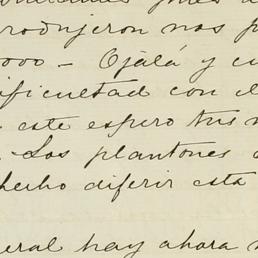 produjeron nos p
000 – Ojalá y cu
ificultad con el
este espero tus
Los plantones
hecho diferir esta
eral hay ahora